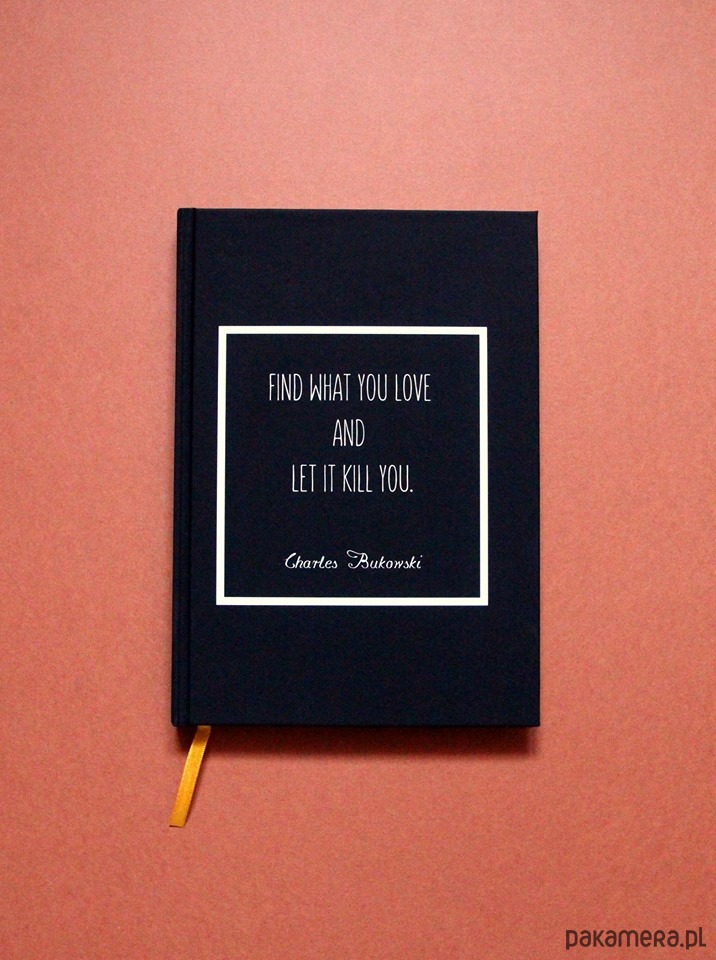 FIND WHAT YOU LOVE
AND
LET IT KILL YOU.
Charles Bukowski
pakamera.pl